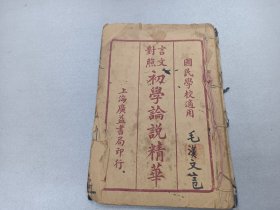 國民學校適用
言文對照
初學論說精華
上海廣益書局印行
毛漢文